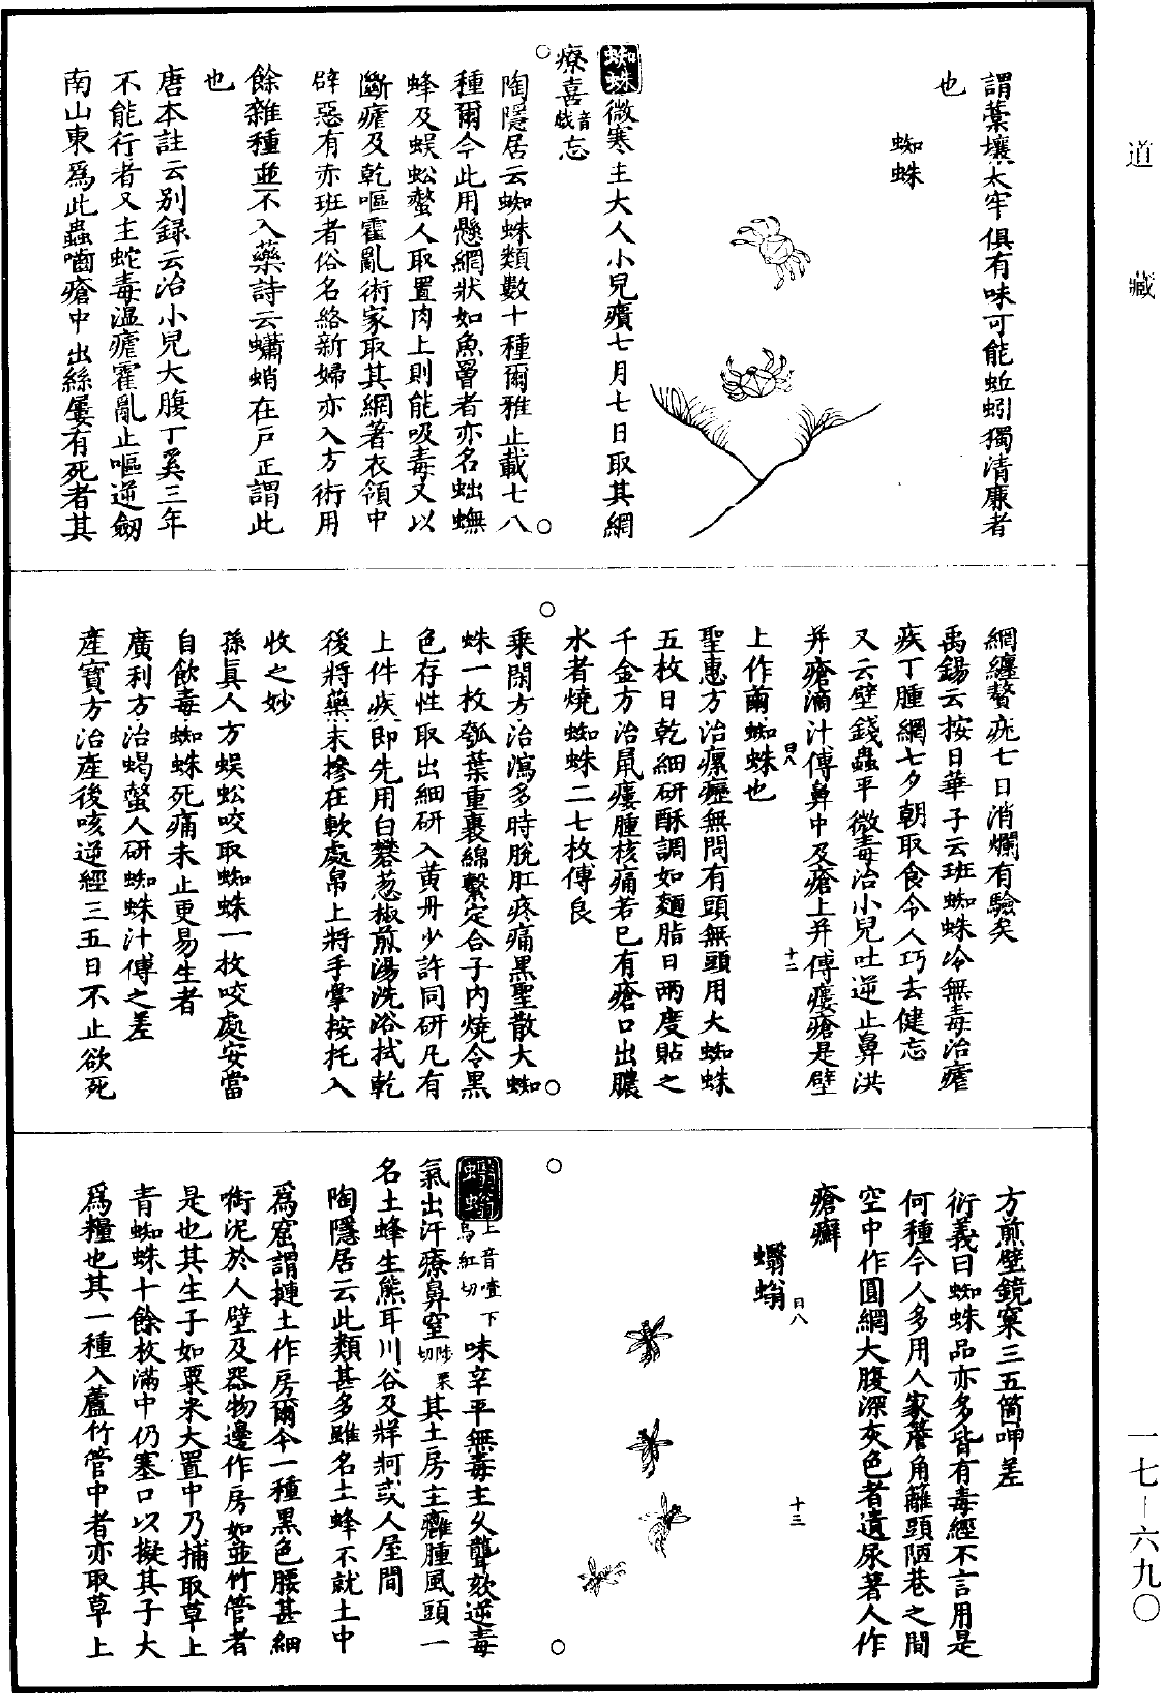 道藏
謂藁壤太牢俱有味可能蚯蚓獨清廉者
也
蜘蛛
蜘蛛微寒主大人小兒㿉七月七日取其網
療喜音戲忘
陶隱居云蜘蛛類數十種爾雅止載七八
種爾今此用懸網狀如魚罾者亦名蚍蟱
蜂及蜈蚣螫人取置肉上則能吸毒又以
斷瘧及乾嘔霍亂術家取其網著衣領中
辟惡有赤斑者俗名絡新婦亦入方術用
餘雜種並不入藥詩云蠨蛸在戶正謂此
也
唐本註云别録云治小兒大腹丁奚三年
不能行者又主蛇毒温瘧霍亂止嘔逆劒
南山東爲此蟲嚙瘡中出絲屢有死者其
網纏贅疣七日消爛有驗矣
禹錫云按日華子云班蜘蛛冷無毒治瘧
疾丁腫網七夕朝取食令人巧去健忘
又云壁錢蟲平微毒治小兒吐逆止鼻洪
并瘡滴汁傅鼻中及瘡上并傅瘻瘡是壁
日八 十二
上作繭蜘蛛也
聖惠方治瘰癧無問有頭無頭用大蜘蛛
五枚日乾細研酥調如麵脂日兩度貼之
千金方治鼠瘻腫核痛若已有瘡口出膿
水者燒蜘蛛二七枚傅良
乘閑方治瀉多時脫肛疼痛黑聖散大蜘
蛛一枚瓠葉重裹綿繫定合子内燒令黑
色存性取出細研入黄丹少許同研凡有
上件疾即先用白礬葱椒煎湯洗浴拭乾
後將藥末摻在軟處帛上將手掌按托入
收之妙
孫真人方蜈蚣咬取蜘蛛一枚咬處安當
自飲毒蜘蛛死痛未止更易生者
廣利方治蝎螫人研蜘蛛汁傅之差
產寶方治產後咳逆經三五日不止欲死
方煎壁鏡窠三五箇呷差
衍義曰蜘蛛品亦多皆有毒經不言用是
何種今人多用人家簷角籬頭陋巷之間
空中作圓網大腹深灰色者遺尿著人作
瘡癬
日八 十三
蠮螉
蠮螉上音噎下烏紅切味辛平無毒主乆聾欬逆毒
氣出汗療鼻窒陟栗切其土房主癰腫風頭一
名土蜂生熊耳川谷及牂牁或人屋間
陶隱居云此類甚多雖名土蜂不就土中
爲窟謂摙土作房爾今一種黑色腰甚細
銜泥於人壁及器物邊作房如並竹管者
是也其生子如粟米大置中乃捕取草上
青蜘蛛十餘枚滿中仍塞口以擬其子大
爲糧也其一種入蘆竹管中者亦取草上
一七—六九〇